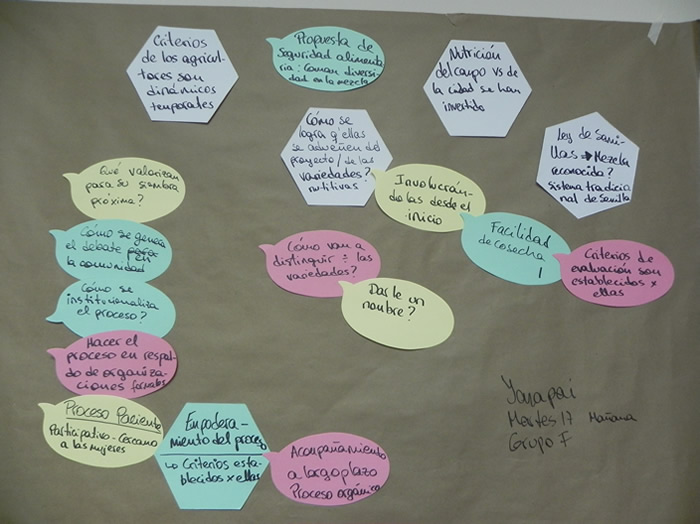 Criterios
de los agricul-
tores son
dinámicos
temporades
Propuesta de
seguridad alimenta
ria: Coman diversi-
dad en la mezcla
Nutrición
del campo vs de
la ciudad se han
invertido
Cómo se
logra q' ellas
se adueñen del
proyecto / de las
variedades?
nutritivas
Ley de Semi-
llas → Mezcla
reconocida?
Sistema tradicio
nal de semilla
Qué valorizan
para su siembra
próxima?
Involucrán-
dolas desde el
inicio
Facilidad
de cosecha
!
Criterios de
evaluación son
establecidos x
ellas
Cómo se genera
el debate en
la comunidad
Cómo van a
distinguir ÷ las
variedades?
Cómo se
institucionaliza
el proceso?
Darle un
nombre?
Hacer el
proceso en respal-
do de organiza-
ciones formales
Proceso Paciente
Participativo - Cercano
a las mujeres
Empodera-
miento del proceso
↳ Criterios esta-
blecidos x ellas
Acompañamiento
a largo plazo
Proceso orgánico
Yanapai
Martes 17 Mañana
Grupo F